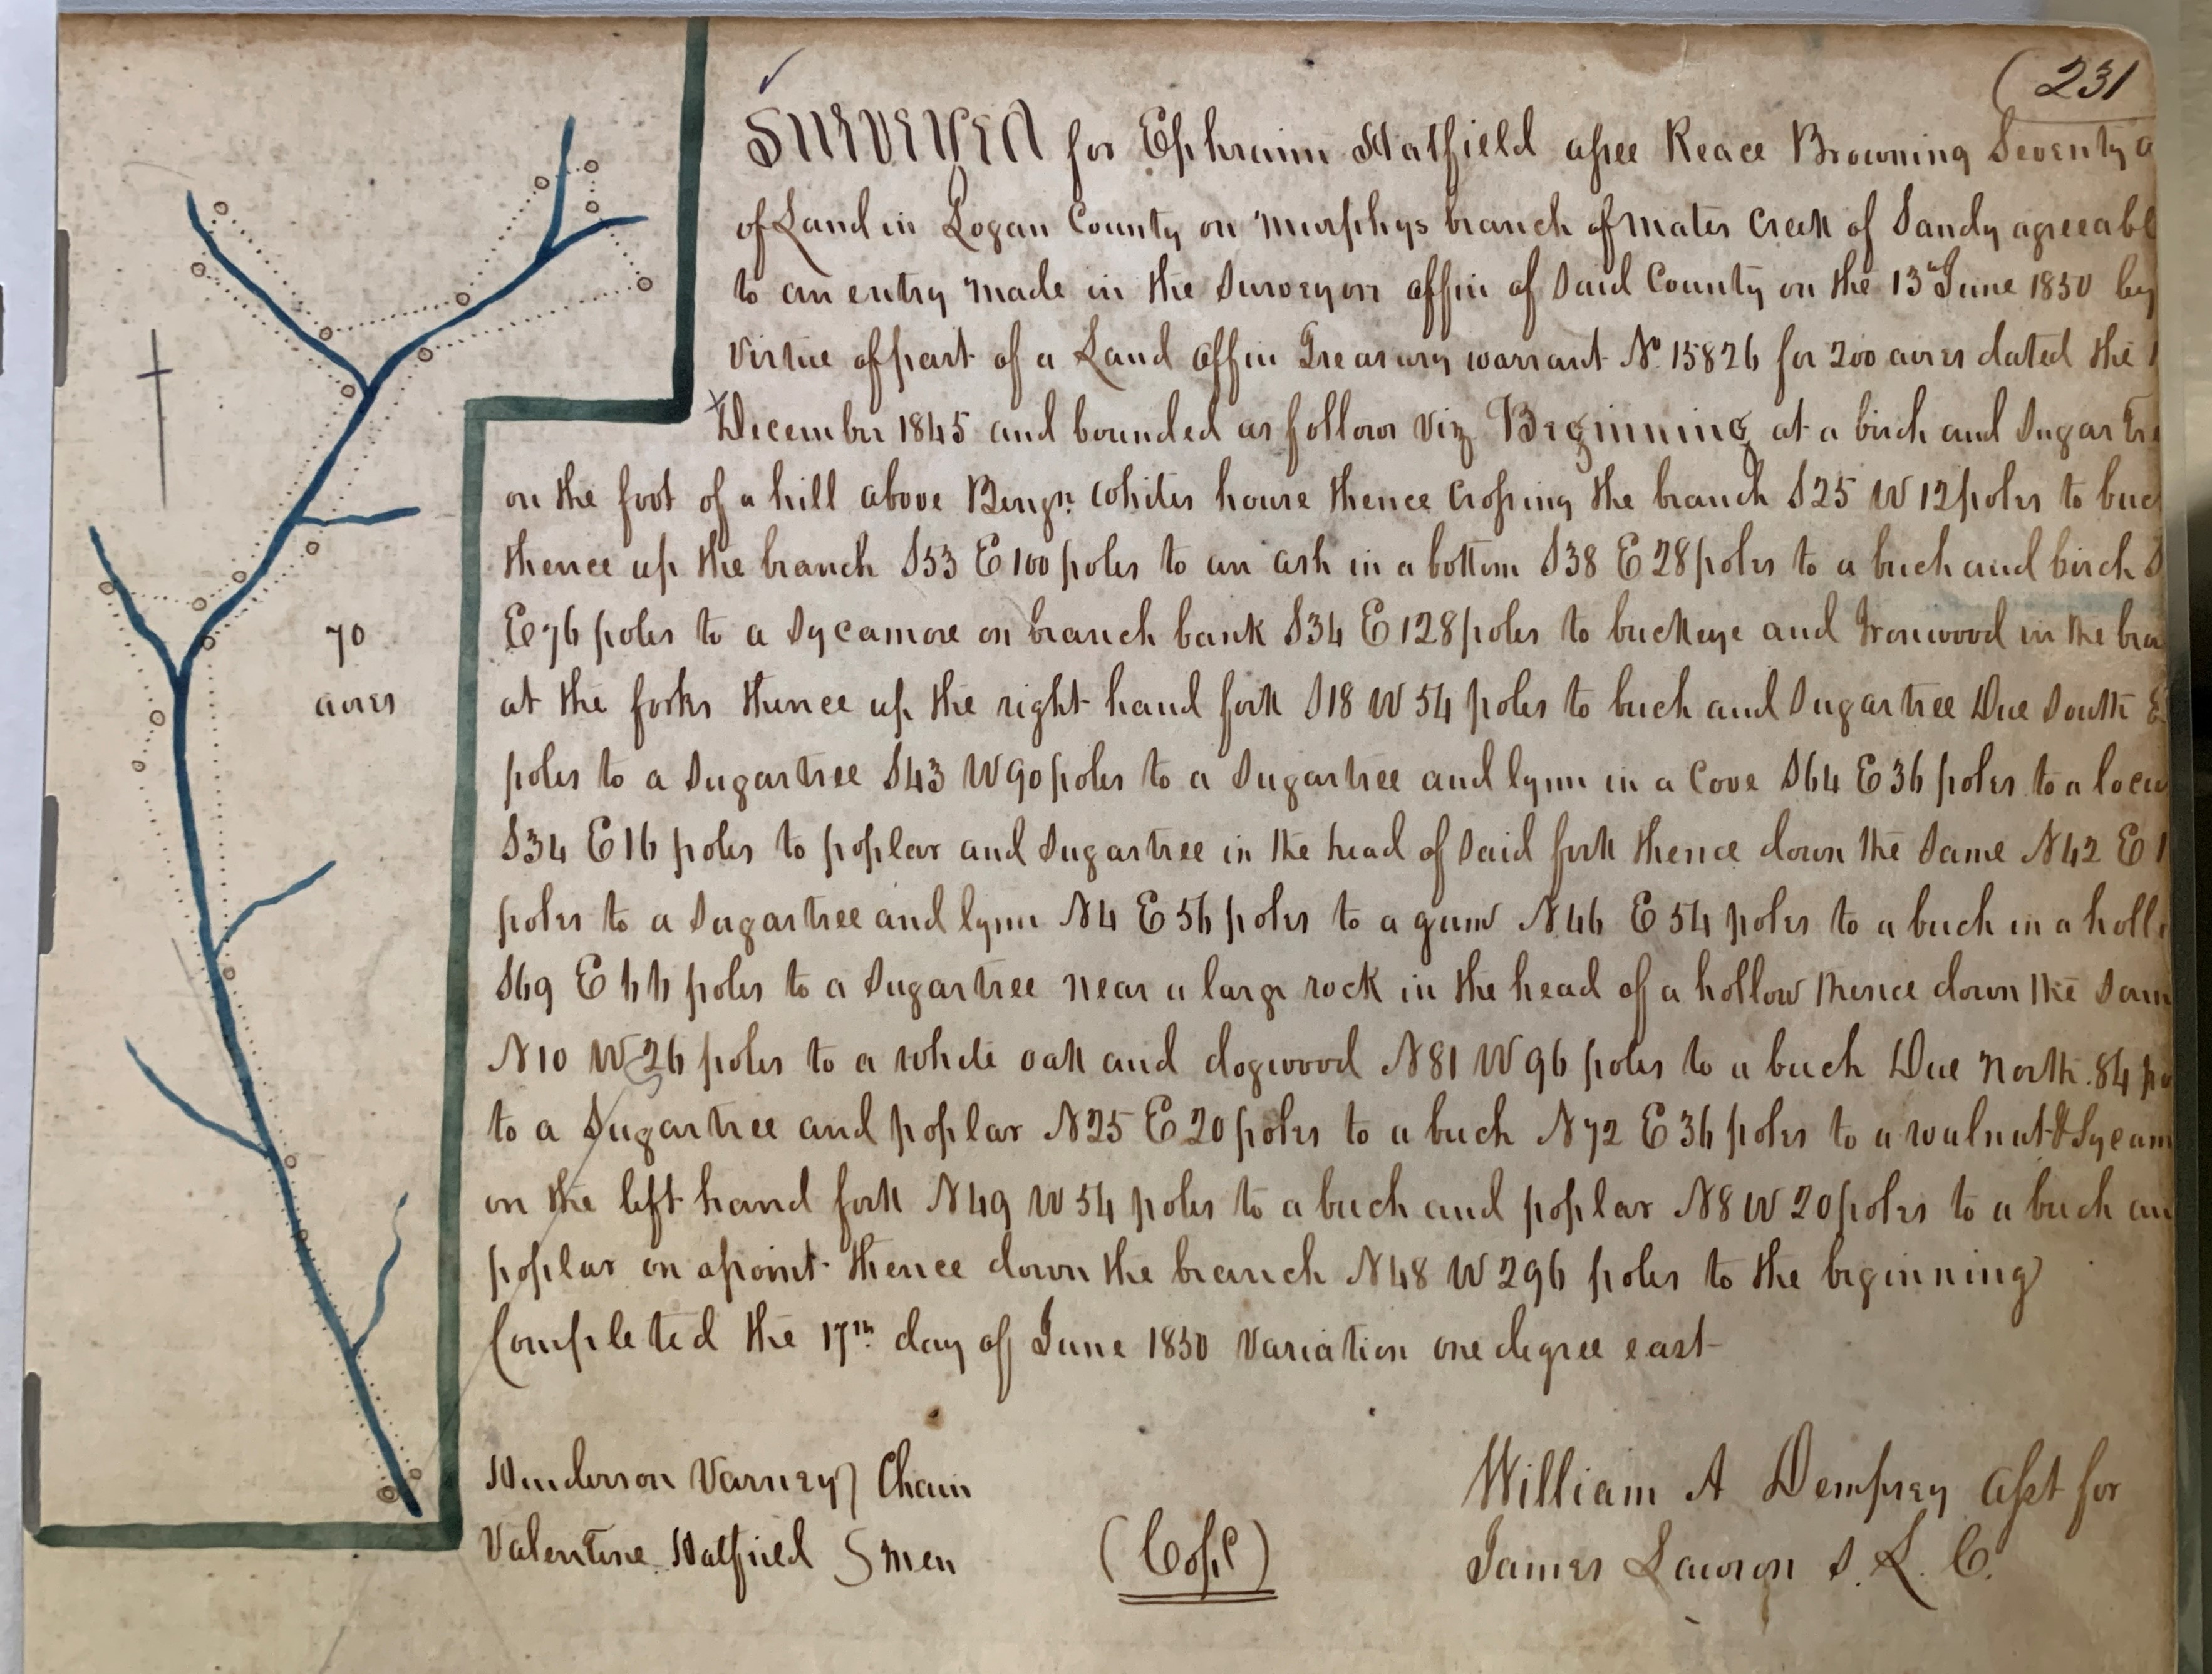 (231
SURVEYED for Ephraim Hatfield assee Reace Browning Seventy a
of Land in Logan County on Murphys branch of Mates Creek of Sandy agreeabl
to an entry made in the Surveyors office of Said County on the 13th June 1850 by
virtue of part of a Land office Treasury warrant No 15826 for 200 acres dated the 1
December 1845 and bounded as follows viz Beginning at a birch and Sugar tre
on the foot of a hill above Benjn. Whites house thence crossing the branch S25 W 12 poles to
thence up the branch S53 E 100 poles to an ash in a bottom S38 E 28 poles to a buch and birch S
E 76 poles to a Sycamore on branch bank S34 E 128 poles to buckeye and Ironwood in the bra
at the forks thence up the right hand fork S18 W 54 poles to buch and Sugartree Due South
poles to a Sugartree S43 W 90 poles to a Sugartree and lynn in a Cove S64 E 36 poles to a locu
S34 E 16 poles to poplar and Sugartree in the head of Said fork thence down the Same N42 E 1
poles to a Sugartree and lynn N4 E 56 poles to a gum N46 E 54 poles to a buch in a holl
S69 E 66 poles to a Sugartree near a large rock in the head of a hollow thence down the Sam
N10 W 26 poles to a white oak and dogwood N81 W 96 poles to a buch Due North 84 po
to a Sugartree and poplar N25 E 20 poles to a buch N72 E 36 poles to a walnut & Sycam
on the left hand fork N49 W 54 poles to a buch and poplar N8 W 20 poles to a buch an
poplar on a point thence down the branch N48 W 296 poles to the beginning
Completed the 17th. day of June 1850 Variation one degree east
70
acres
Henderson Varney } Chain
Valentine Hatfield } men
(Copd)
William A Dempsey asst for
James Lawson S. L. C.